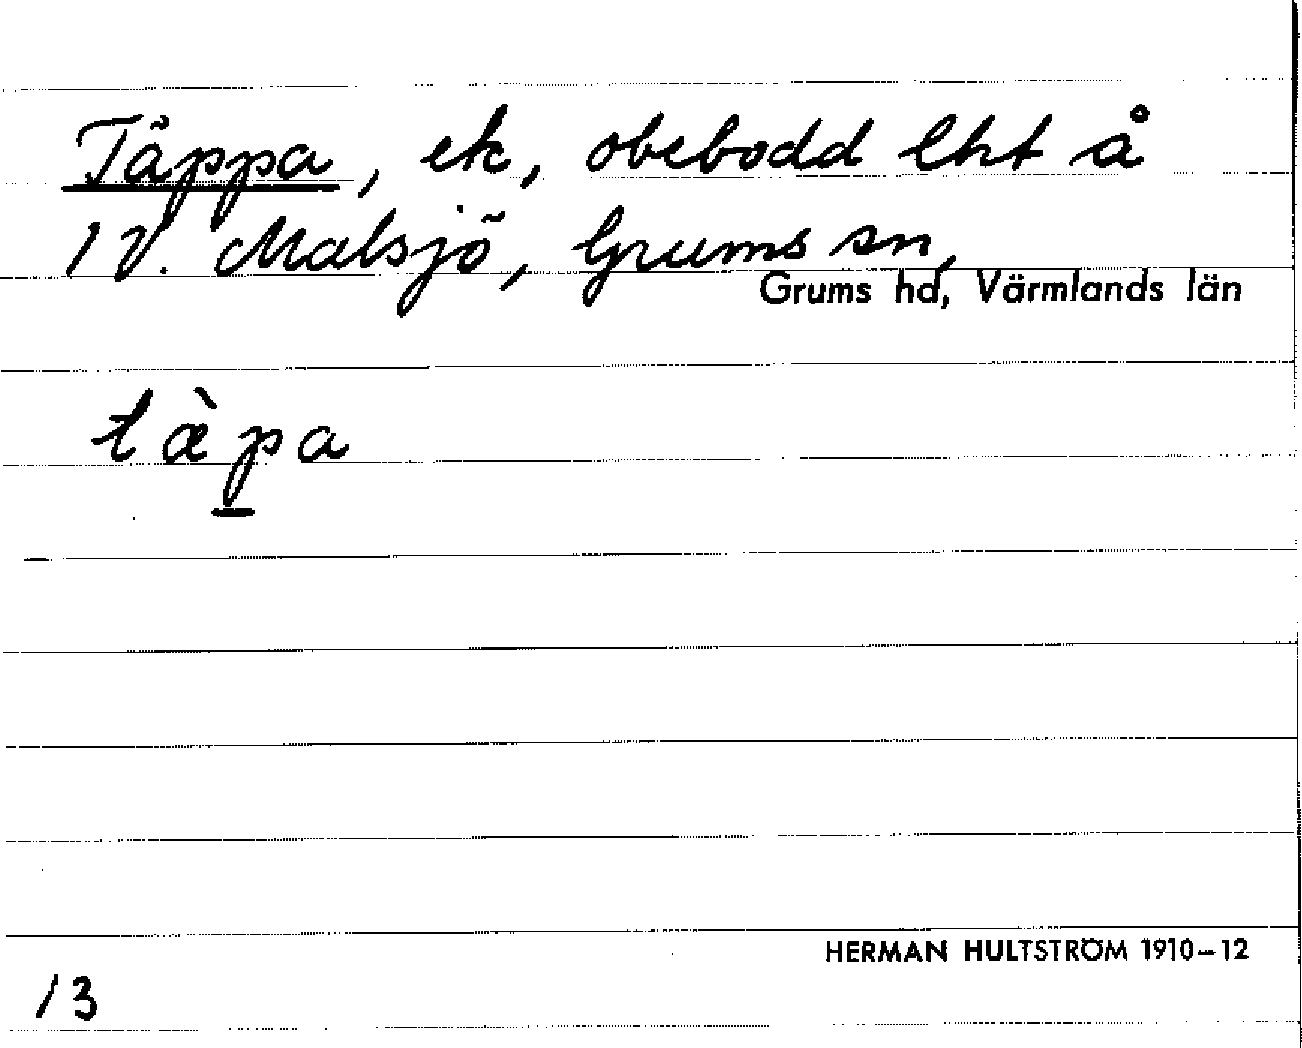 Täppa, ek, obebodd lht å
1 V. Malsjö, Grums sn,
Grums hd, Värmlands län
tæ̀p̲a
HERMAN HULTSTRÖM 1910–12
13